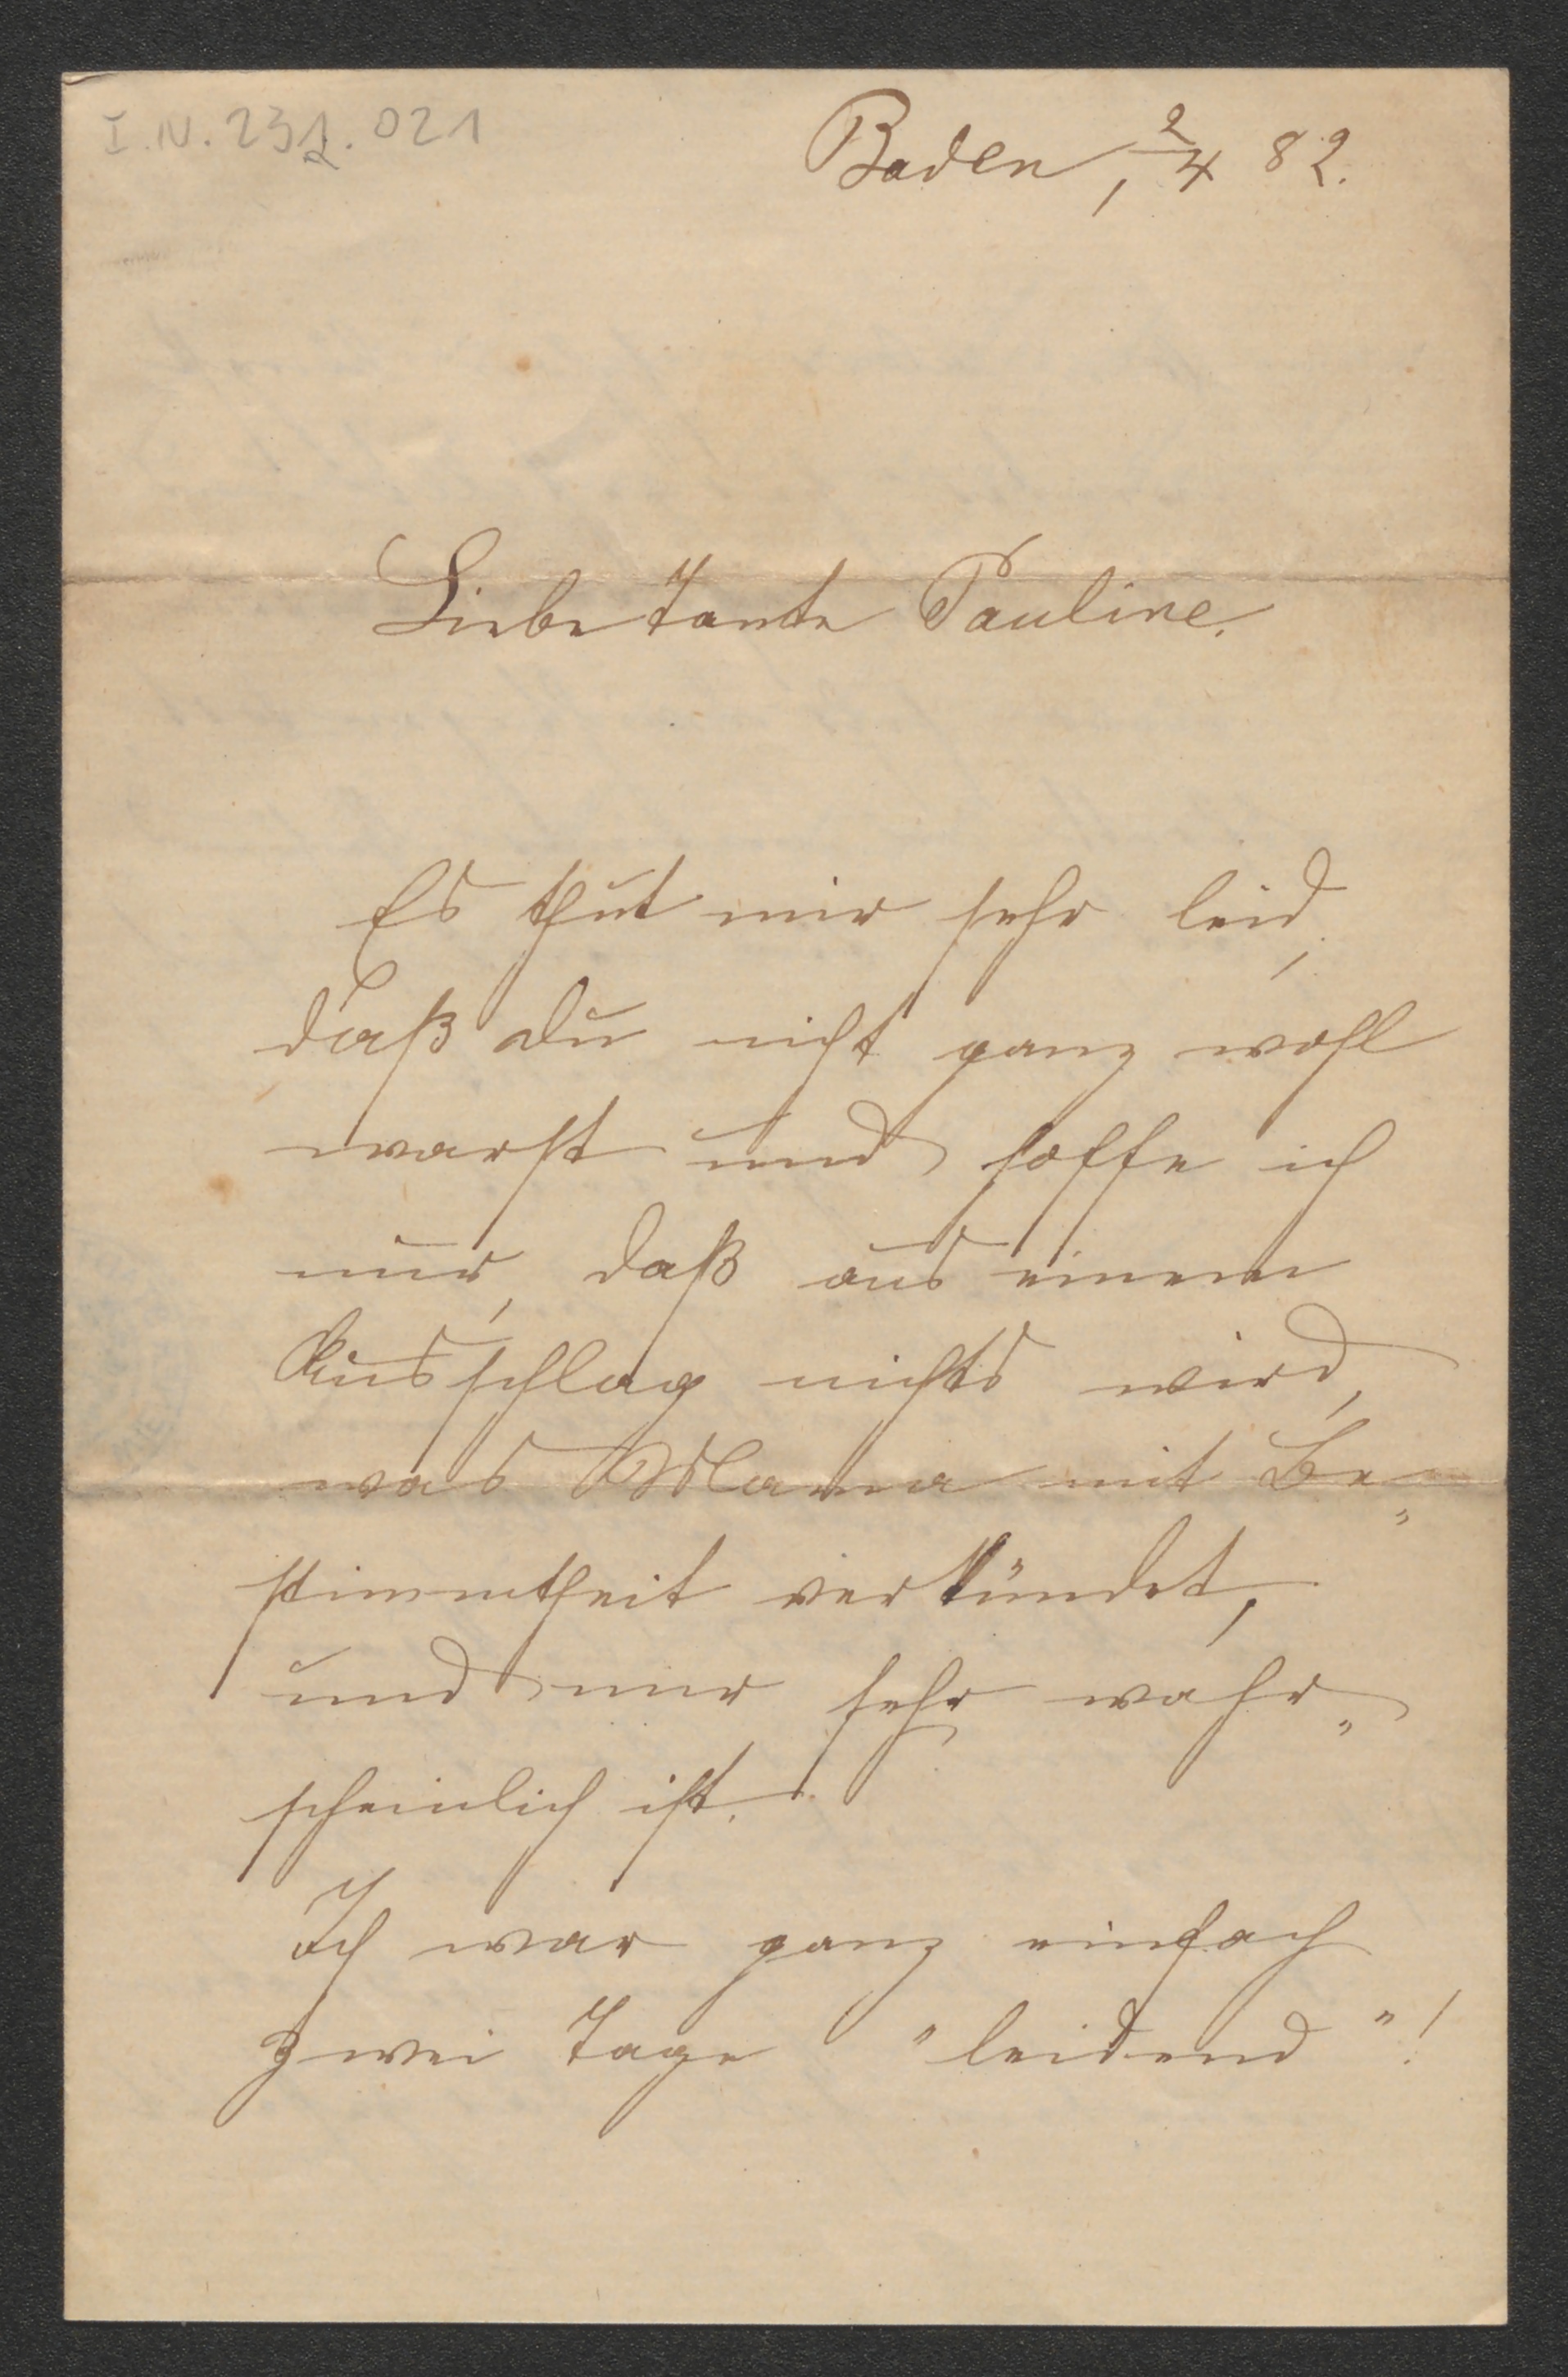 I.N. 232.021
Baden, 2/4 82.
Liebe Tante Pauline.
Es thut mir sehr leid,
daß Du nicht ganz wohl
warst und hoffe ich
nur, daß aus einem
Ausschlag nichts wird,
was Mama mit Be„
stimmtheit verkündet,
und mir sehr wahr„
scheinlich ist.
Ich war ganz einfach
zwei Tage "leidend"!